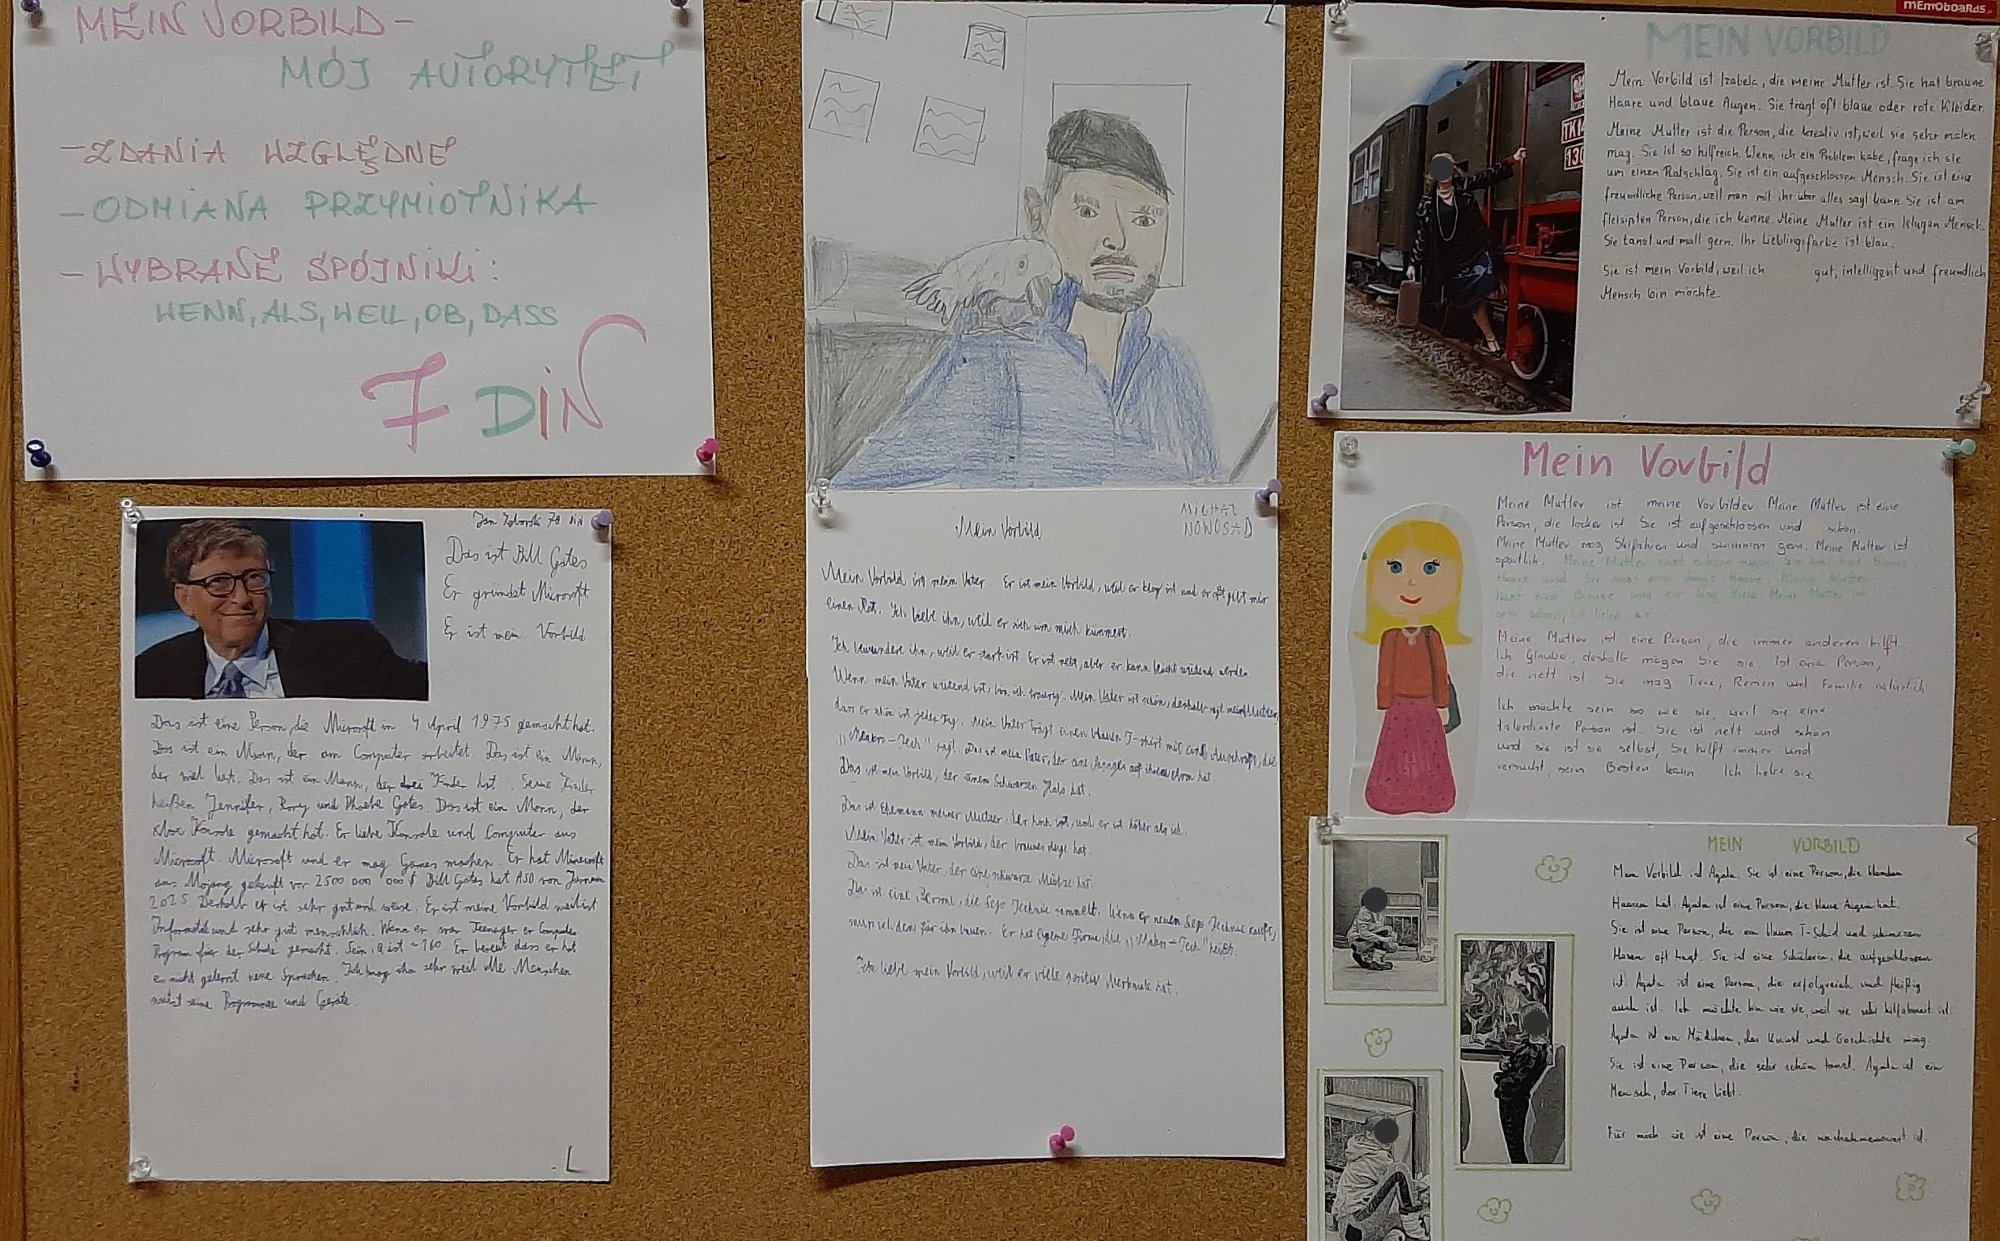 mEmOboaRds
MEIN VORBILD -
MÓJ AUTORYTET
- ZDANIA WZGLĘDNE
- ODMIANA PRZYMIOTNIKA
- WYBRANE SPÓJNIKI:
WENN, ALS, WEIL, OB, DASS
7 DIN
Das ist Bill Gates
Er gründet Microsoft
Er ist mein Vorbild
Das ist eine Person, die Microsoft in 4 April 1975 gemacht hat.
Das ist ein Mann, der am Computer arbeitet. Das ist ein Mann,
der viel liest. Das ist ein Mann, der drei Kinder hat. Seine Kinder
heißen Jennifer, Rory und Phoebe Gates. Das ist ein Mann, der
Xbox Konsole gemacht hat. Er liebe Konsole und Computer aus
Microsoft. Microsoft und er mag Games machen. Er hat Minecraft
aus Mojang gekauft vor 2500 000 000 $. Bill Gates hat
2025. Deshalb er ist sehr gut und Er ist meine Vorbild weil ist
und sehr gut menschlich. Wenn er war Teenager er Computer
Program für der Schule gemacht. Sein iq ist ~160. Er bereut dass er hat
es nicht gelernt neue Sprachen. Ich mag ihn sehr weil alle Menschen
nutzt seine Programme und Geräte.
MICHAŁ
NOWOSAD
Mein Vorbild
Mein Vorbild ist mein Vater. Er ist mein Vorbild, weil er klug ist und er oft gibt mir
einen Rat. Ich liebe ihn, weil er sich um mich kümmert.
Ich bewundere ihn, weil er stark ist. Er ist nett, aber er kann leicht wütend werden.
Wenn mein Vater wütend ist, bin ich traurig. Mein Vater ist schön, deshalb sagt meine Mutter,
dass er schön ist jeden Tag. Mein Vater trägt einen blauen T-shirt mit Aufschrift, die
„Makro-Tech" sagt. Das ist mein Vater, der eine Papagei auf hat.
Das ist mein Vorbild, der einem Schwarzen hat.
Das ist Ehemann meiner Mutter, der hoch ist, und er ist höher als ich.
Mein Vater ist mein Vorbild, der braunes Auge hat.
Das ist mein Vater, der eine schwarze Mütze hat.
Das ist eine Person, die Lego Technic sammelt. Wenn er neuen Lego Technic kauft,
muss ich den für ihn bauen. Er hat eigene Firma, die „Makro-Tech" heißt.
Ich liebe mein Vorbild, weil er viele positiv Merkmale hat.
MEIN VORBILD
Mein Vorbild ist Izabela, die meine Mutter ist. Sie hat braune
Haare und blaue Augen. Sie trägt oft blaue oder rote Kleider.
Meine Mutter ist die Person, die kreativ ist, weil sie sehr malen
mag. Sie ist so hilfreich. Wenn ich ein Problem habe, frage ich sie
um einen Ratschlag. Sie ist ein aufgeschlossen Mensch. Sie ist eine
freundliche Person, weil man mit ihr über alles sagt kann. Sie ist am
fleisigsten Person, die ich kenne. Meine Mutter ist ein klugen Mensch.
Sie tanst und malt gern. Ihr Lieblingsfarbe ist blau.
Sie ist mein Vorbild, weil ich gut, intelligent und freundlich
Mensch bin möchte.
TK
130
Mein Vorbild
Meine Mutter ist meine Vorbilder Meine Mutter ist eine
Person, die locker ist. Sie ist aufgeschlossen und schön.
Meine Mutter mag Skifahren und swimmen gern. Meine Mutter ist
sportlich. Meine Mutter hast schöne Augen. Sie hat
Haare und Sie hast lange Haare. Meine Mutter
hast eine Blouse und ein lang Kleid. Meine Mutter ist
sehr schön, ich liebe sie.
Meine Mutter ist eine Person, die immer anderen hilft.
Ich Glaube, deshalb mögen Sie sie. Ist eine Person,
die nett ist. Sie mag Tiere, Reisen und Familie natürlich.
Ich möchte sein so wie sie, weil sie eine
talentierte Person ist. Sie ist nett und schön
und sie ist sie selbst, Sie hilft immer und
versucht, sein Besten Ich liebe sie.
MEIN VORBILD
Mein Vorbild ist Agata. Sie ist eine Person, die blonden
Haaren hat. Agata ist eine Person, die blaue Augen hat.
Sie ist eine Person, die ein blaues T-Shirt und schwarzen
Hosen oft tragt. Sie ist eine Schülerin, die aufgeschlossen
ist. Agata ist eine Person, die erfolgreich und fleißig
auch ist. Ich möchte bin wie sie, weil sie sehr hilfsbereit ist.
Agata ist ein Mädchen, das Kunst und Geschichte mag.
Sie ist eine Person, die sehr schön tanzt. Agata ist ein
Mensch, der Tiere liebt.
Für mich sie ist eine Person, die nachahmenswert ist.